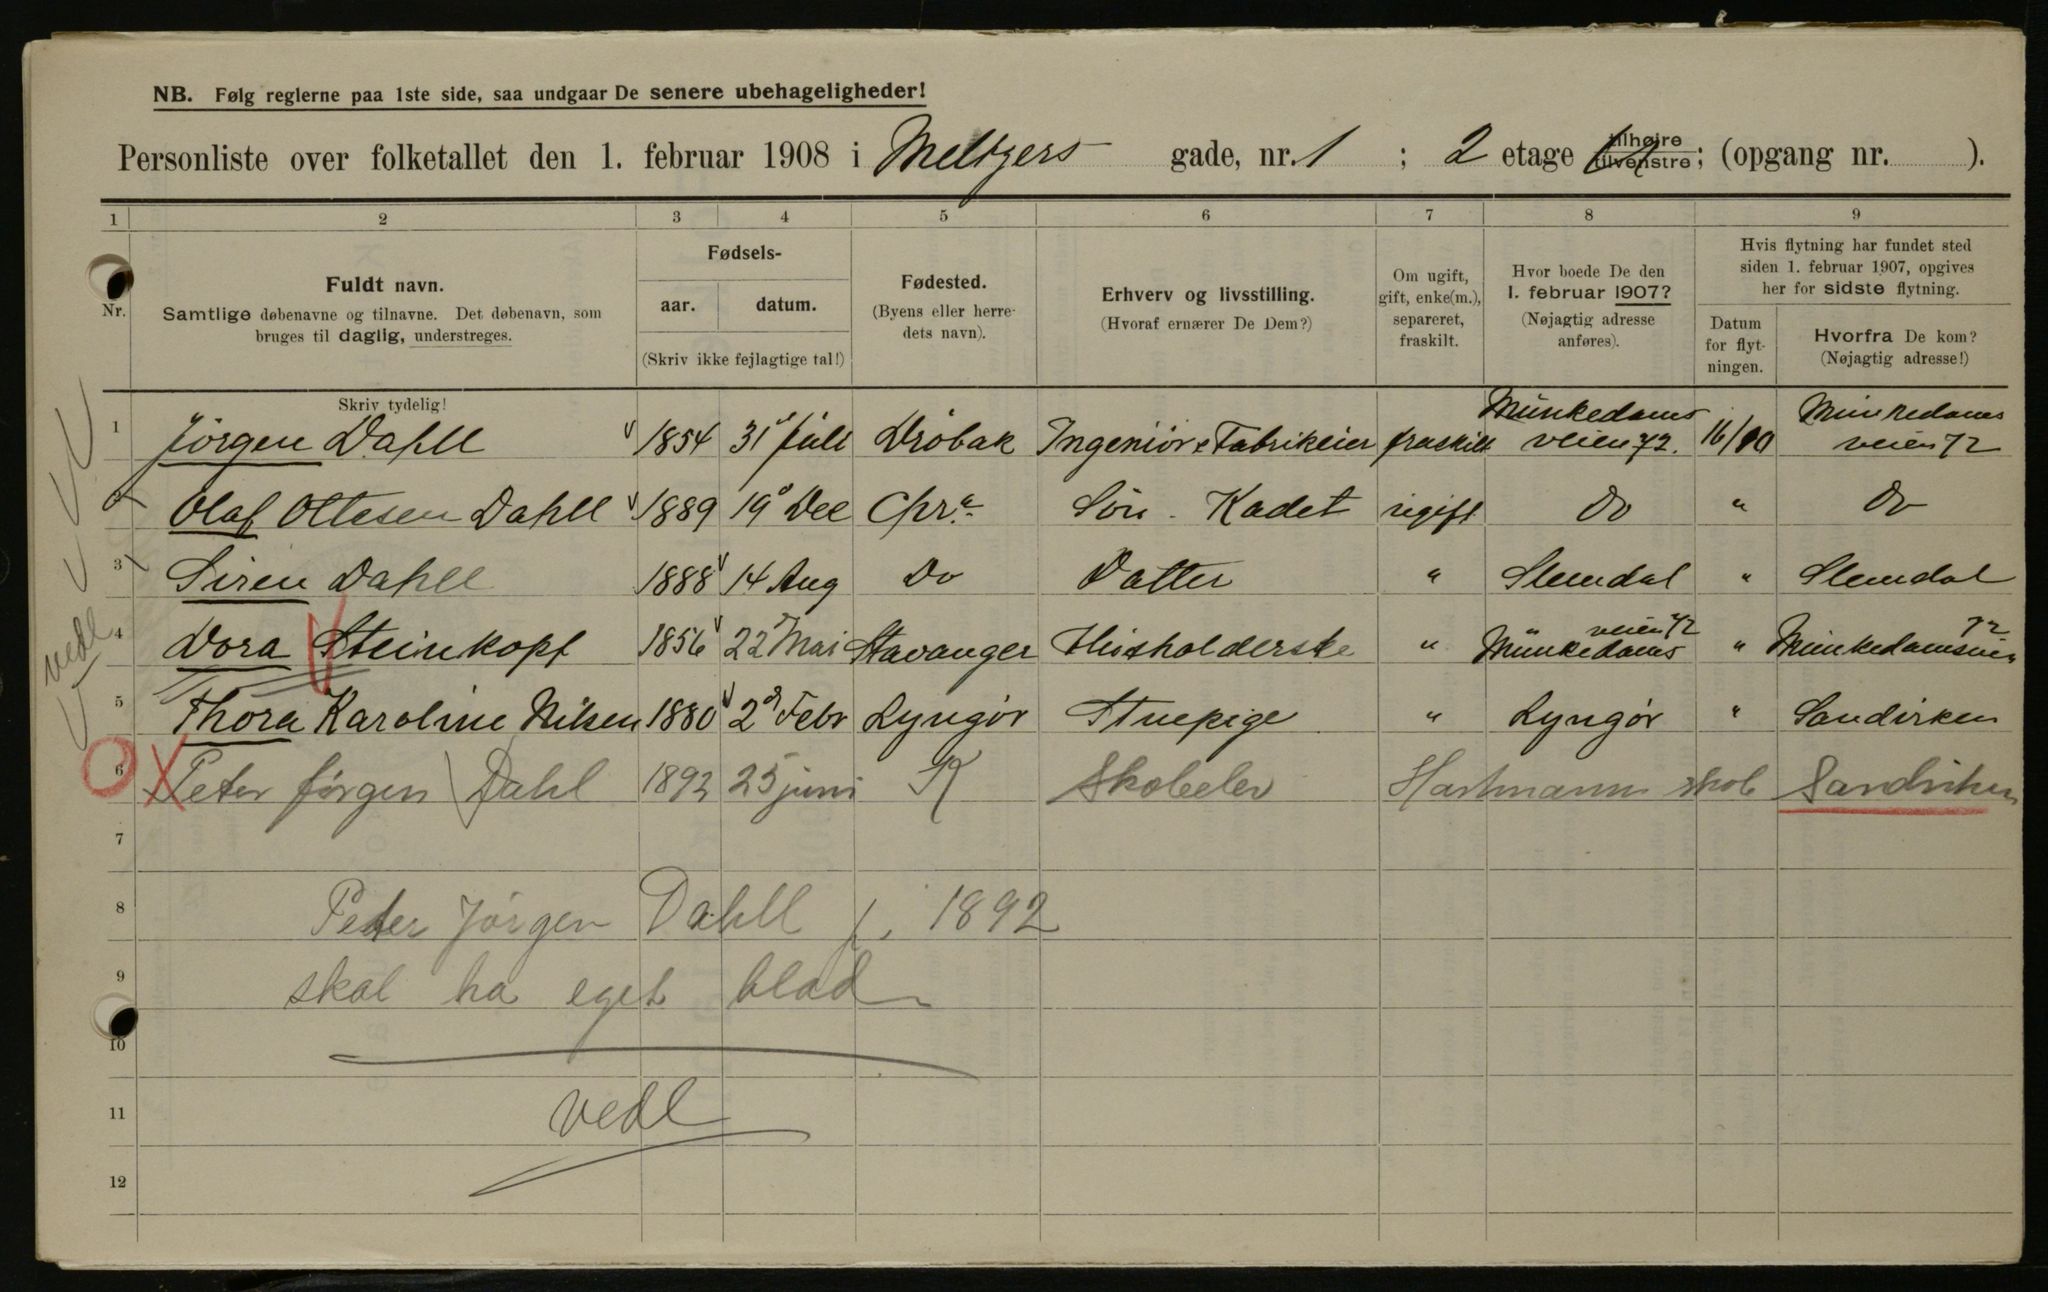 NB. Følg reglerne paa 1ste side, saa undgaar De senere ubehageligheder!
Personliste over folketallet den 1. februar 1908 i Meltzers gade, nr. 1 ; 2 etage tilhøjre tilvenstre; (opgang nr. ).
1 2 3 4 5 6 7 8 9
Nr.
Fuldt navn.
Samtlige døbenavne og tilnavne. Det døbenavn, som
bruges til daglig, understreges.
Skriv tydelig!
Fødsels-
aar. datum.
(Skriv ikke fejlagtige tal!)
Fødested.
(Byens eller herre-
dets navn).
Erhverv og livsstilling.
(Hvoraf ernærer De Dem?)
Om ugift,
gift, enke(m.),
separeret,
fraskilt.
Hvor boede De den
1. februar 1907?
(Nøjagtig adresse
anføres).
Hvis flytning har fundet sted
siden 1. februar 1907, opgives
her for sidste flytning.
Datum
for flyt-
ningen.
Hvorfra De kom?
(Nøjagtig adresse!)
1 Jörgen Dahll 1854 31 Juli Dröbak Ingeniör & Fabrikeier fraskilt Munkedams veien 72. 16/10 Munkedams veien 72
Olaf Ottesen Dahll 1889 19 Dec Chr.a Sön - Kadet ugift Do " Do
3 Siren Dahll 1888 14 Aug Do Datter " Slemdal " Slemdal
4 Dora Steinkopf 1856 22 Mai Stavanger Husholderske " Munkedams veien 72 " Munkedamsvei 72
5 Thora Karoline Nilsen 1880 2 Febr Lyngör Stuepige " Lyngör " Sandviken
6 Peter Jørgen Dahl 1892 25 juni K Skoleelev Hartmanns skole Sandviken
7
8 Peter Jørgen Dahll f. 1892
9 skal ha eget blad
10
11 vedl
12
vedl